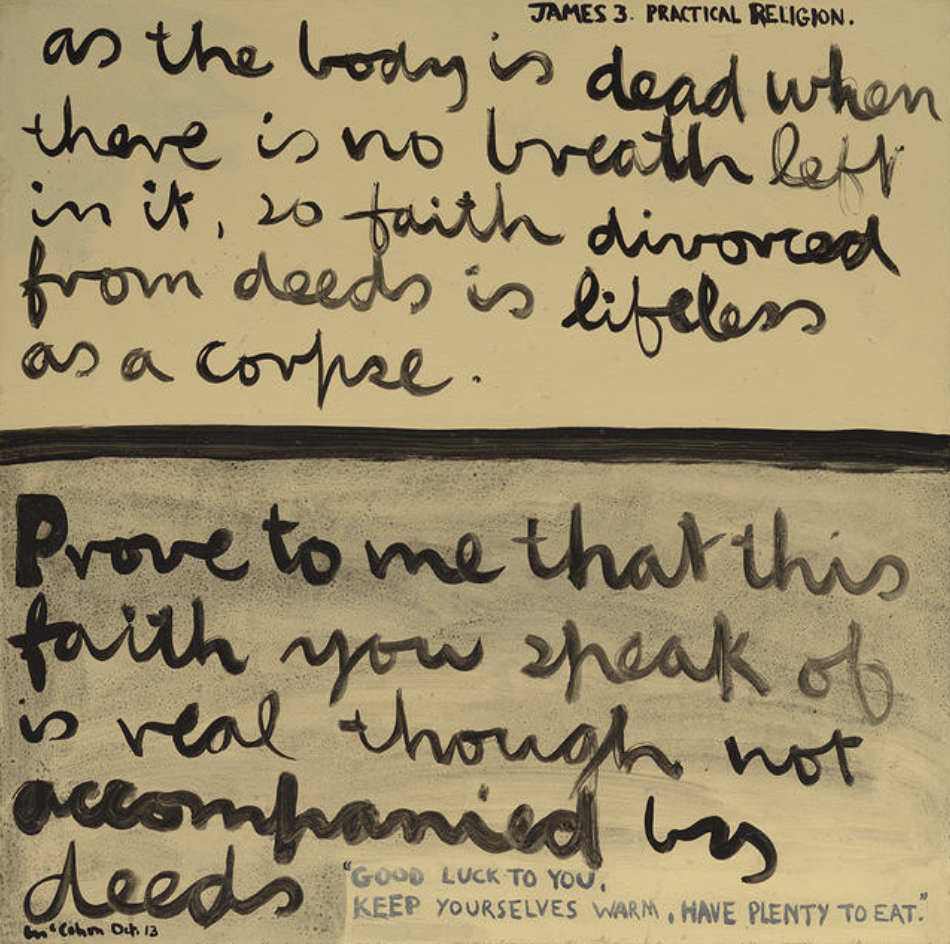 JAMES 3. PRACTICAL RELIGION.
as the body is dead when
there is no breath left
in it, so faith divorced
from deeds is lifeless
as a corpse.
Prove to me that this
faith you speak of
is real though not
accompanied by
deeds
"GOOD LUCK TO YOU,
KEEP YOURSELVES WARM, HAVE PLENTY TO EAT."
Oct. 13